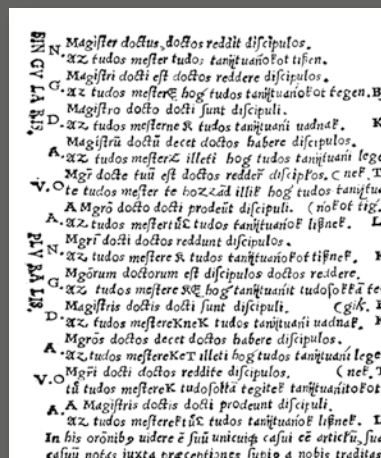 SINGULARIS.
N. Magiſter doctus, doctos reddit diſcipulos.
az tudos meſter tudos tanijtuanokot tiſzen.
G. Magiſtri docti eſt doctos reddere diſcipulos.
az tudos meſtere hog tudos tanijtuanokot tegen.
D. Magiſtro docto docti ſunt diſcipuli.
az tudos meſterne k tudos tanijtuani uadnak.
A. Magiſtrũ doctũ decet doctos habere diſcipulos.
az tudos meſterz illeti hog tudos tanijtuani lege
V. O Mgr̃ docte tuũ eſt doctos redder̃ diſcipłos. (nek.
te tudos meſter te hozzad illik hog tudos tanijtua
A. A Mgrõ docto docti prodeũt diſcipuli. (nokot tig.
az tudos meſtertũl tudos tanijtuanok liſznek.
PLURALIS.
N. Mgri docti doctos reddunt diſcipulos.
az tudos meſtere k tudos tanijtuanokot tiſznek.
G. Mgõrum doctorum eſt diſcipulos doctos reddere.
az tudos meſtere ke hog tanijtuanit tudoſokka te
D. Magiſtris doctis docti ſunt diſcipuli. (gik.
az tudos meſtereKneK tudos tanijtuani uadnak.
A. Mgros doctos decet doctos habere diſcipulos.
az tudos meſtereKeT illeti hog tudos tanijtuani lege
V. O Mgr̃i docti doctos reddite diſcipulos. (nek.
tũ tudos meſtereK tudoſokka tegitek tanijtuanitokot
A. A Magiſtris doctis docti prodeunt diſcipuli.
az tudos meſterektũl tudos tanijtuanok liſznek.
In his orõnibꝰ uidere ẽ ſuũ unicuiqꝫ caſui eẽ articłũ, ſua
caſuũ notas iuxta præceptiones ſupiꝰ a nobis traditas